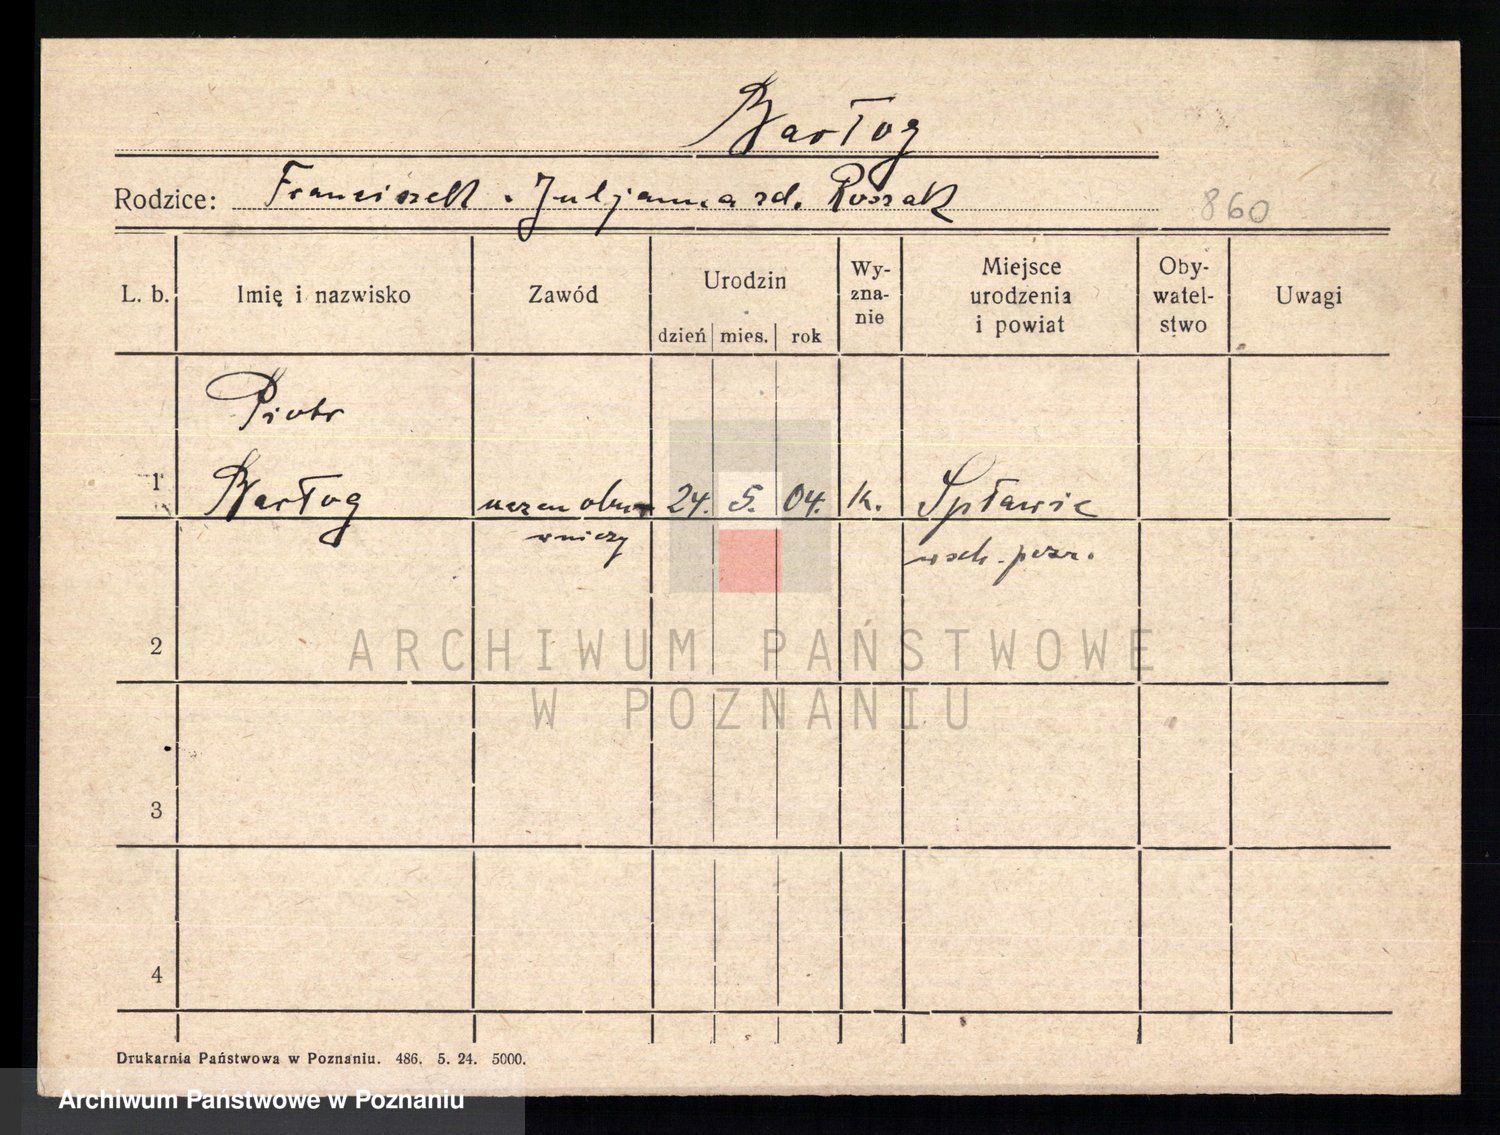 Bartog
Rodzice: Franciszek . Juljanna zd. Roszak
860
L. b. Imię i nazwisko Zawód Urodzin dzień mies. rok Wy-zna-nie Miejsce urodzenia i powiat Oby-watel-stwo Uwagi
Piotr
1 Bartog uczeń obu- 24. 5. 04. k. Spławie
wniczy wsch. pozn.
2
ARCHIWUM PAŃSTWOWE
W POZNANIU
3
4
Drukarnia Państwowa w Poznaniu. 486. 5. 24. 5000.
Archiwum Państwowe w Poznaniu